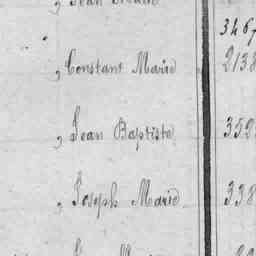 , Jean
3467
, Constant Marie 2138
, Jean Baptiste 352
, Joseph Marie 338